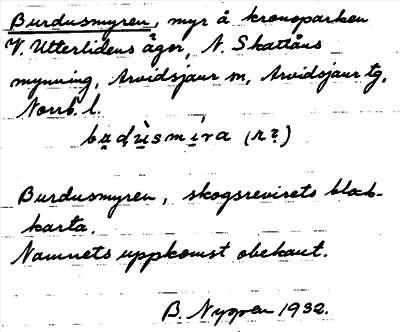 Burdusmyren, myr å kronoparken
V. Utterlidens ägor, N. Skattåns
mynning, Arvidsjaur sn, Arvidsjaur tg,
Norrb. l.
badùsmìra (r?)
Burdusmyren, skogsrevirets blad-
karta.
Namnets uppkomst obekant.
B. Nygren 1932.